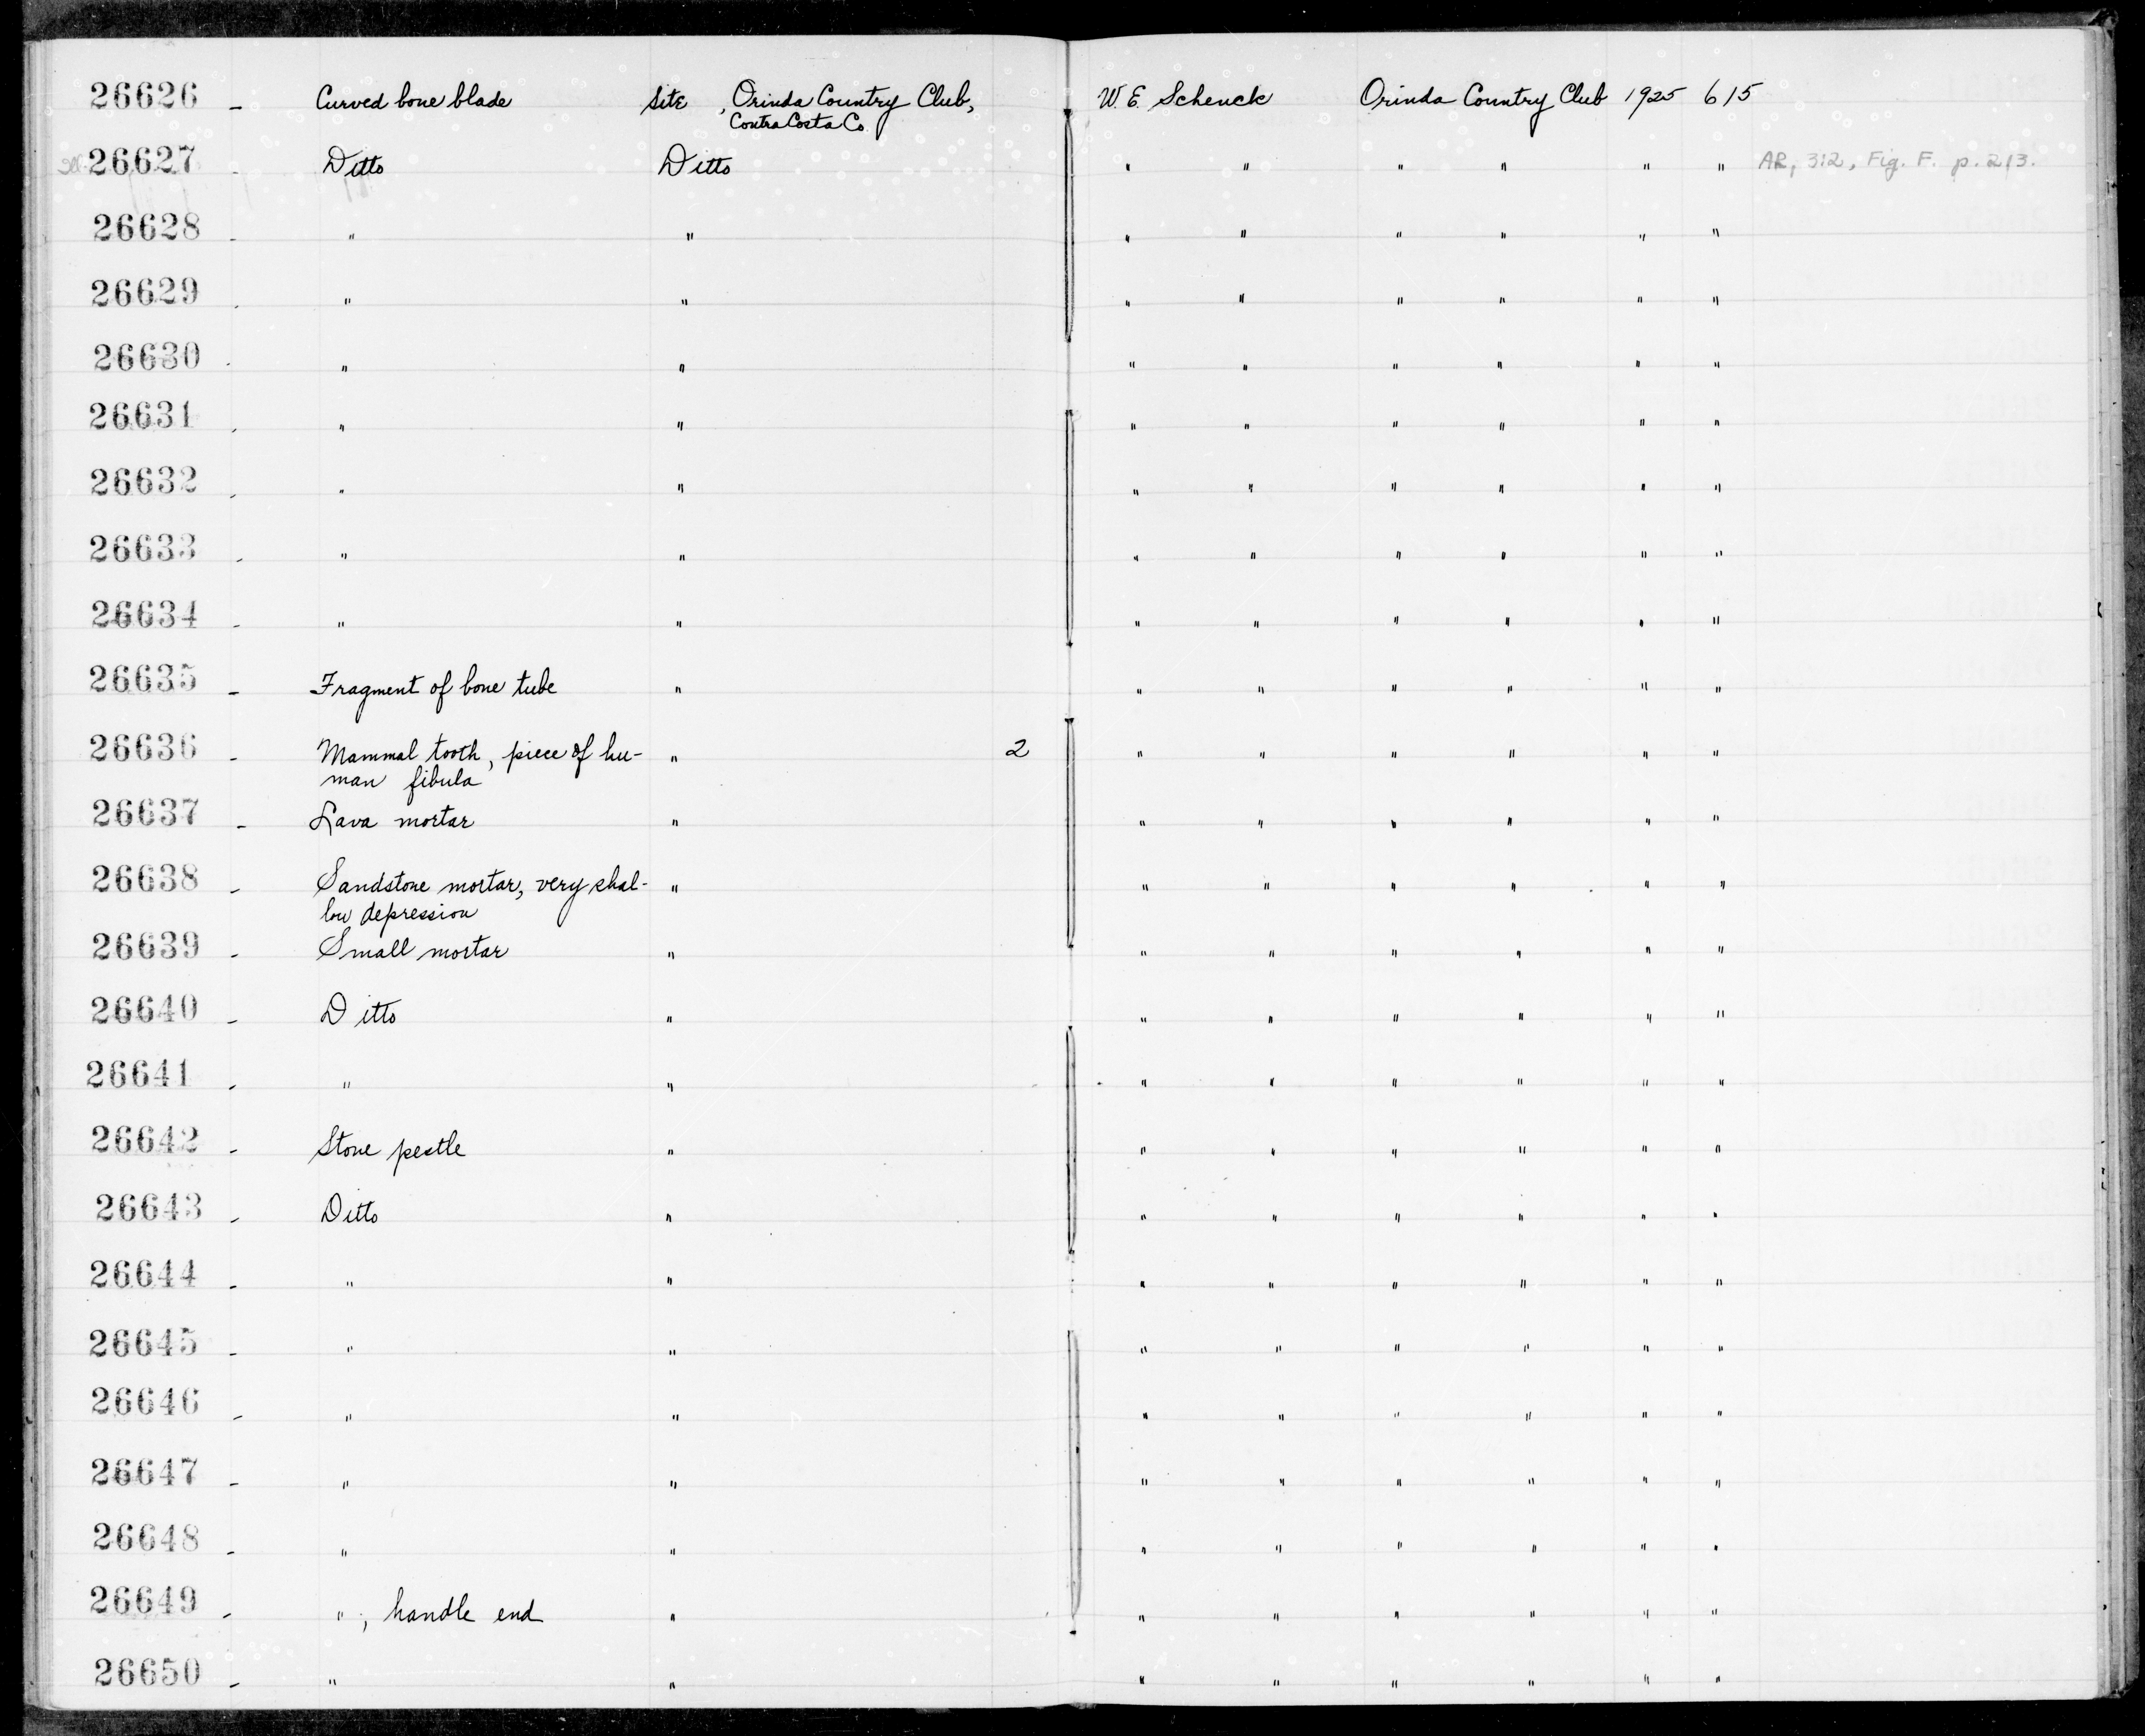 26626 - Curved bone blade Site , Orinda Country Club, W. E. Schenck Orinda Country Club 1925 615
Contra Costa Co
26627 - Ditto Ditto " " " " " " AR, 312, Fig. F. p. 213.
26628 - " " " " " " " "
26629 - " " " " " " " "
26630 - " " " " " " " "
26631 - " " " " " " " "
26632 - " " " " " " " "
26633 - " " " " " " " "
26634 - " " " " " " " "
26635 - Fragment of bone tube " " " " " " "
26636 - Mammal tooth, piece of hu- " 2 " " " " " "
man fibula
26637 - Lava mortar " " " " " " "
26638 - Sandstone mortar, very shal- " " " " " " "
low depression
26639 - Small mortar " " " " " " "
26640 - Ditto " " " " " " "
26641 - " " " " " " " "
26642 - Stone pestle " " " " " " "
26643 - Ditto " " " " " " "
26644 - " " " " " " " "
26645 - " " " " " " " "
26646 - " " " " " " " "
26647 - " " " " " " " "
26648 - " " " " " " " "
26649 - " , handle end " " " " " " "
26650 - " " " " " " " "